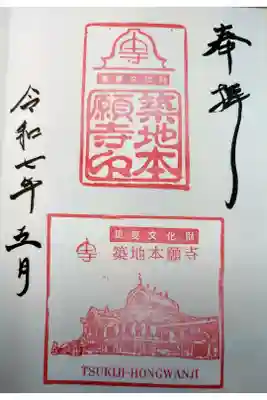 奉拝
寺
重要文化財
築地本
願寺印
令和七年五月
重要文化財
寺
築地本願寺
TSUKIJI-HONGWANJI